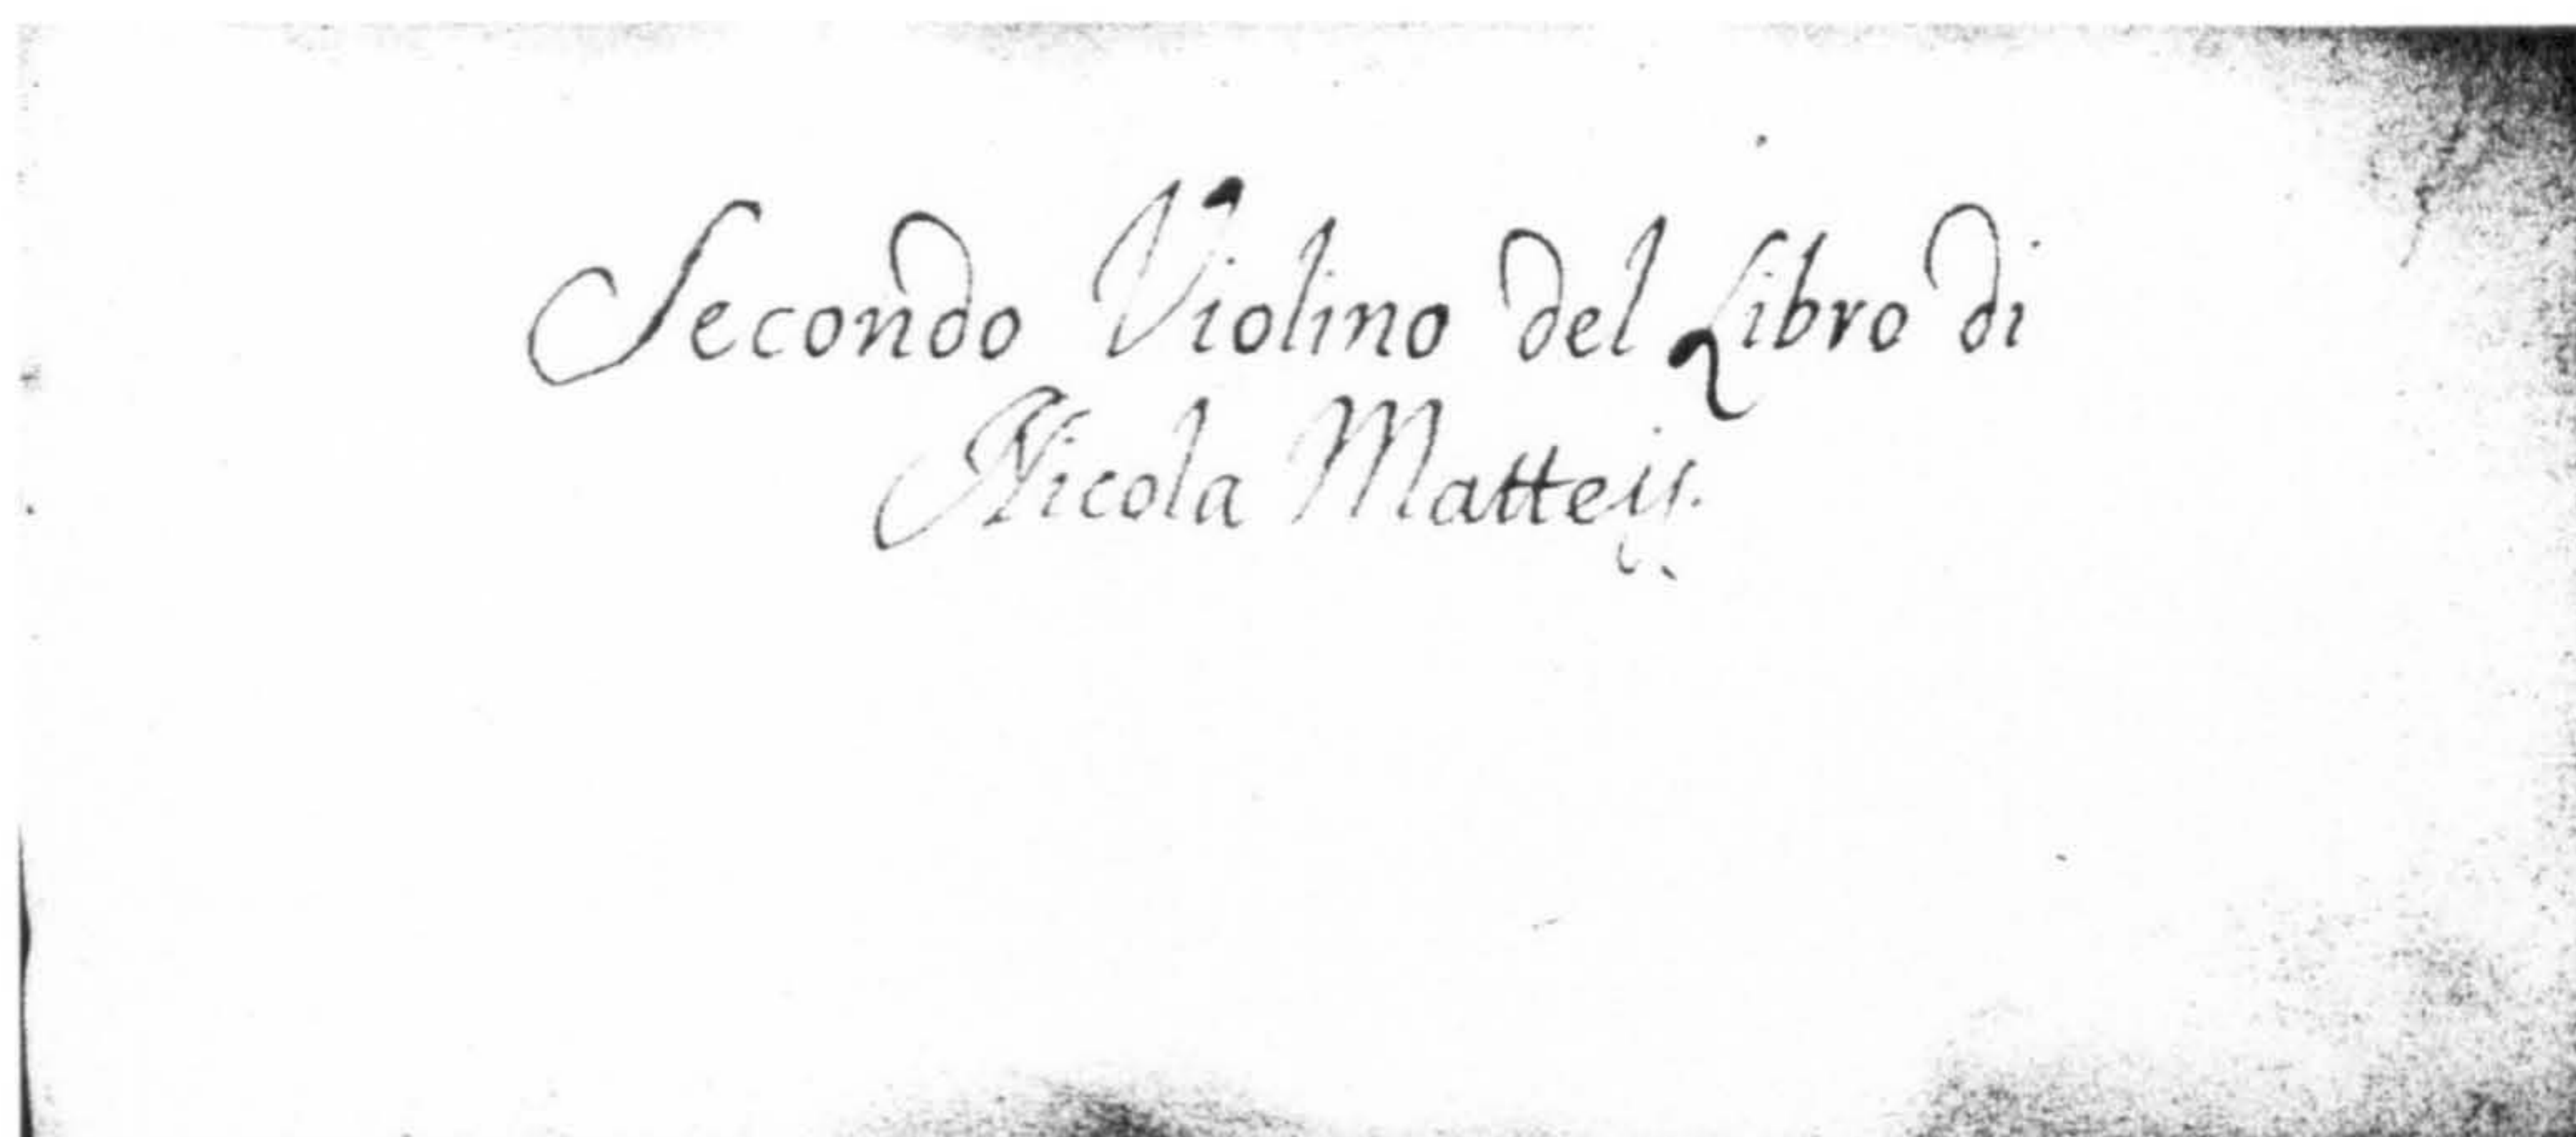 Secondo Violino del Libro di
Nicola Matteis.